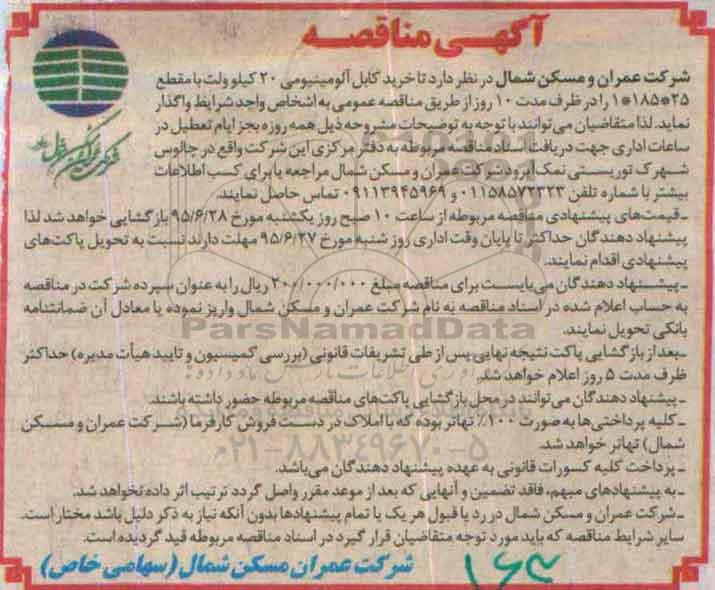 آگهـی مناقصـه
شرکت عمران و مسکن شمال در نظر دارد تا خرید کابل آلومینیومی ۲۰ کیلو ولت با مقطع
۲۵*۱۸۵*۱ را در ظرف مدت ۱۰ روز از طریق مناقصه عمومی به اشخاص واجد شرایط واگذار
نماید. لذا متقاضیان می‌توانند با توجه به توضیحات مشروحه ذیل همه روزه بجز ایام تعطیل در
ساعات اداری جهت دریافت اسناد مناقصه مربوطه به دفتر مرکزی این شرکت واقع در چالوس
شهرک توریستی نمک‌آبرود شرکت عمران و مسکن شمال مراجعه یا برای کسب اطلاعات
بیشتر با شماره تلفن ۰۱۱۵۸۵۷۲۳۲۳ و ۰۹۱۱۳۹۴۵۹۶۹ تماس حاصل نمایند.
ـ قیمت‌های پیشنهادی مناقصه مربوطه از ساعت ۱۰ صبح روز یکشنبه مورخ ۹۵/۶/۲۸ بازگشایی خواهد شد لذا
پیشنهاد دهندگان حداکثر تا پایان وقت اداری روز شنبه مورخ ۹۵/۶/۲۷ مهلت دارند نسبت به تحویل پاکت‌های
پیشنهادی اقدام نمایند.
ـ پیشنهاد دهندگان می‌بایست برای مناقصه مبلغ ۲۰۰/۰۰۰/۰۰۰ ریال را به عنوان سپرده شرکت در مناقصه
به حساب اعلام شده در اسناد مناقصه به نام شرکت عمران و مسکن شمال واریز نموده یا معادل آن ضمانتنامه
بانکی تحویل نمایند.
ParsNamadData
ـ بعد از بازگشایی پاکت نتیجه نهایی پس از طی تشریفات قانونی (بررسی کمیسیون و تایید هیأت مدیره) حداکثر
ظرف مدت ۵ روز اعلام خواهد شد.
ـ پیشنهاد دهندگان می‌توانند در محل بازگشایی پاکت‌های مناقصه مربوطه حضور داشته باشند.
ـ کلیه پرداختی‌ها به صورت ۱۰۰٪ تهاتر بوده که با املاک در دست فروش کارفرما (شرکت عمران و مسکن
شمال) تهاتر خواهد شد.
۰۲۱-۸۸۳۴۹۶۷۰-۵
ـ پرداخت کلیه کسورات قانونی به عهده پیشنهاد دهندگان می‌باشد.
ـ به پیشنهادهای مبهم، فاقد تضمین و آنهایی که بعد از موعد مقرر واصل گردد ترتیب اثر داده نخواهد شد.
ـ شرکت عمران و مسکن شمال در رد یا قبول هر یک یا تمام پیشنهادها بدون آنکه نیاز به ذکر دلیل باشد مختار است.
سایر شرایط مناقصه که باید مورد توجه متقاضیان قرار گیرد در اسناد مناقصه مربوطه قید گردیده است.
شرکت عمران مسکن شمال (سهامی خاص)